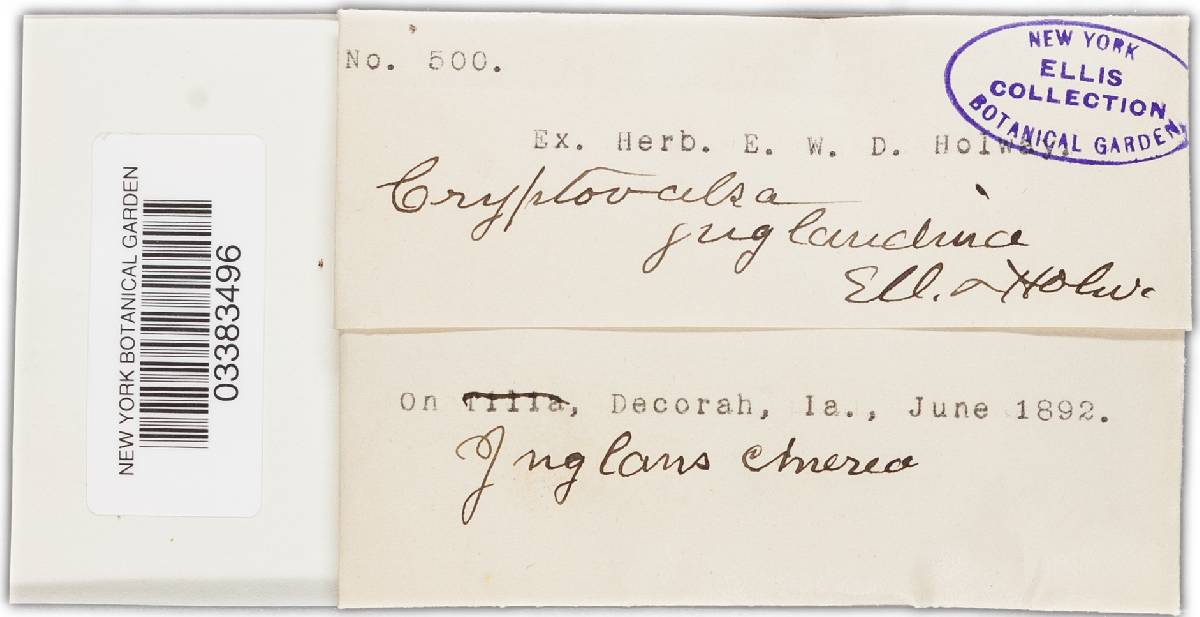 NEW YORK BOTANICAL GARDEN
03383496
No. 500.
NEW YORK
ELLIS
COLLECTION
BOTANICAL GARDEN
Ex. Herb. E. W. D. Holway.
Cryptovalsa
juglandina
Ell. & Holw.
On Tilia, Decorah, Ia., June 1892.
Juglans cinerea